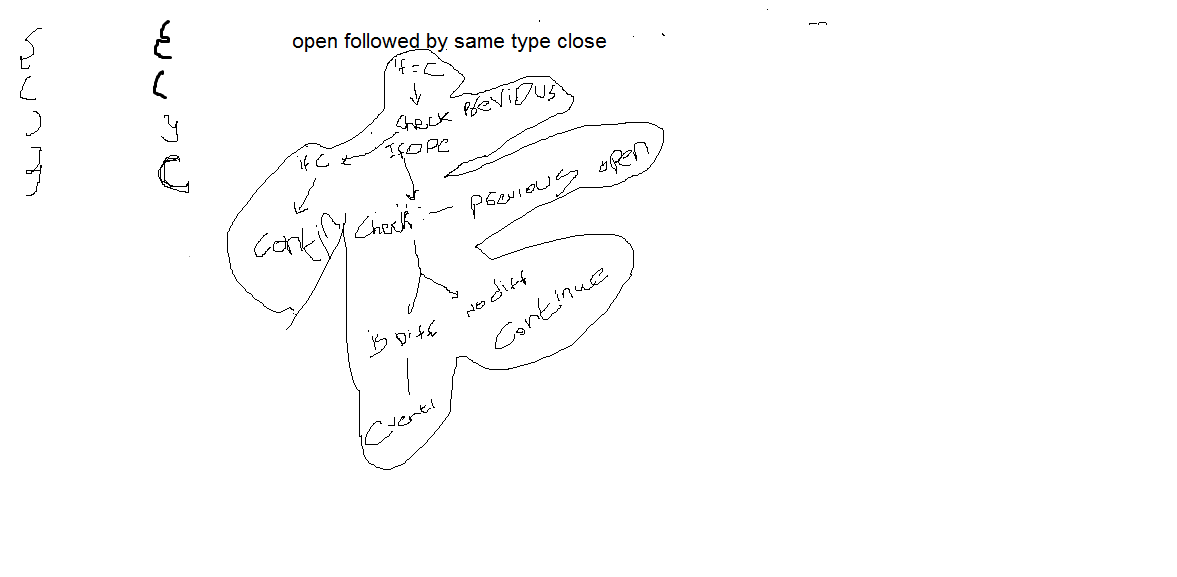 { {
open followed by same type close
( (
if = C
check PREVIOUS
) }
If OPE
if C
}
check PREVIOUS OPEN
contin
no diff
continue
is Diff